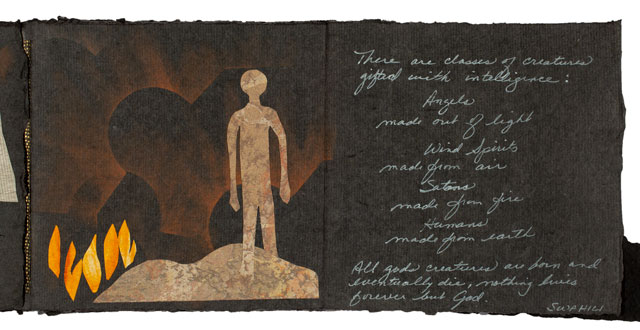 There are classes of creatures
gifted with intelligence:
Angels
made out of light
Wind Spirits
made from air
Satans
made from fire
Humans
made from earth
All gods creatures are born and
eventually die, nothing lives
forever but God.